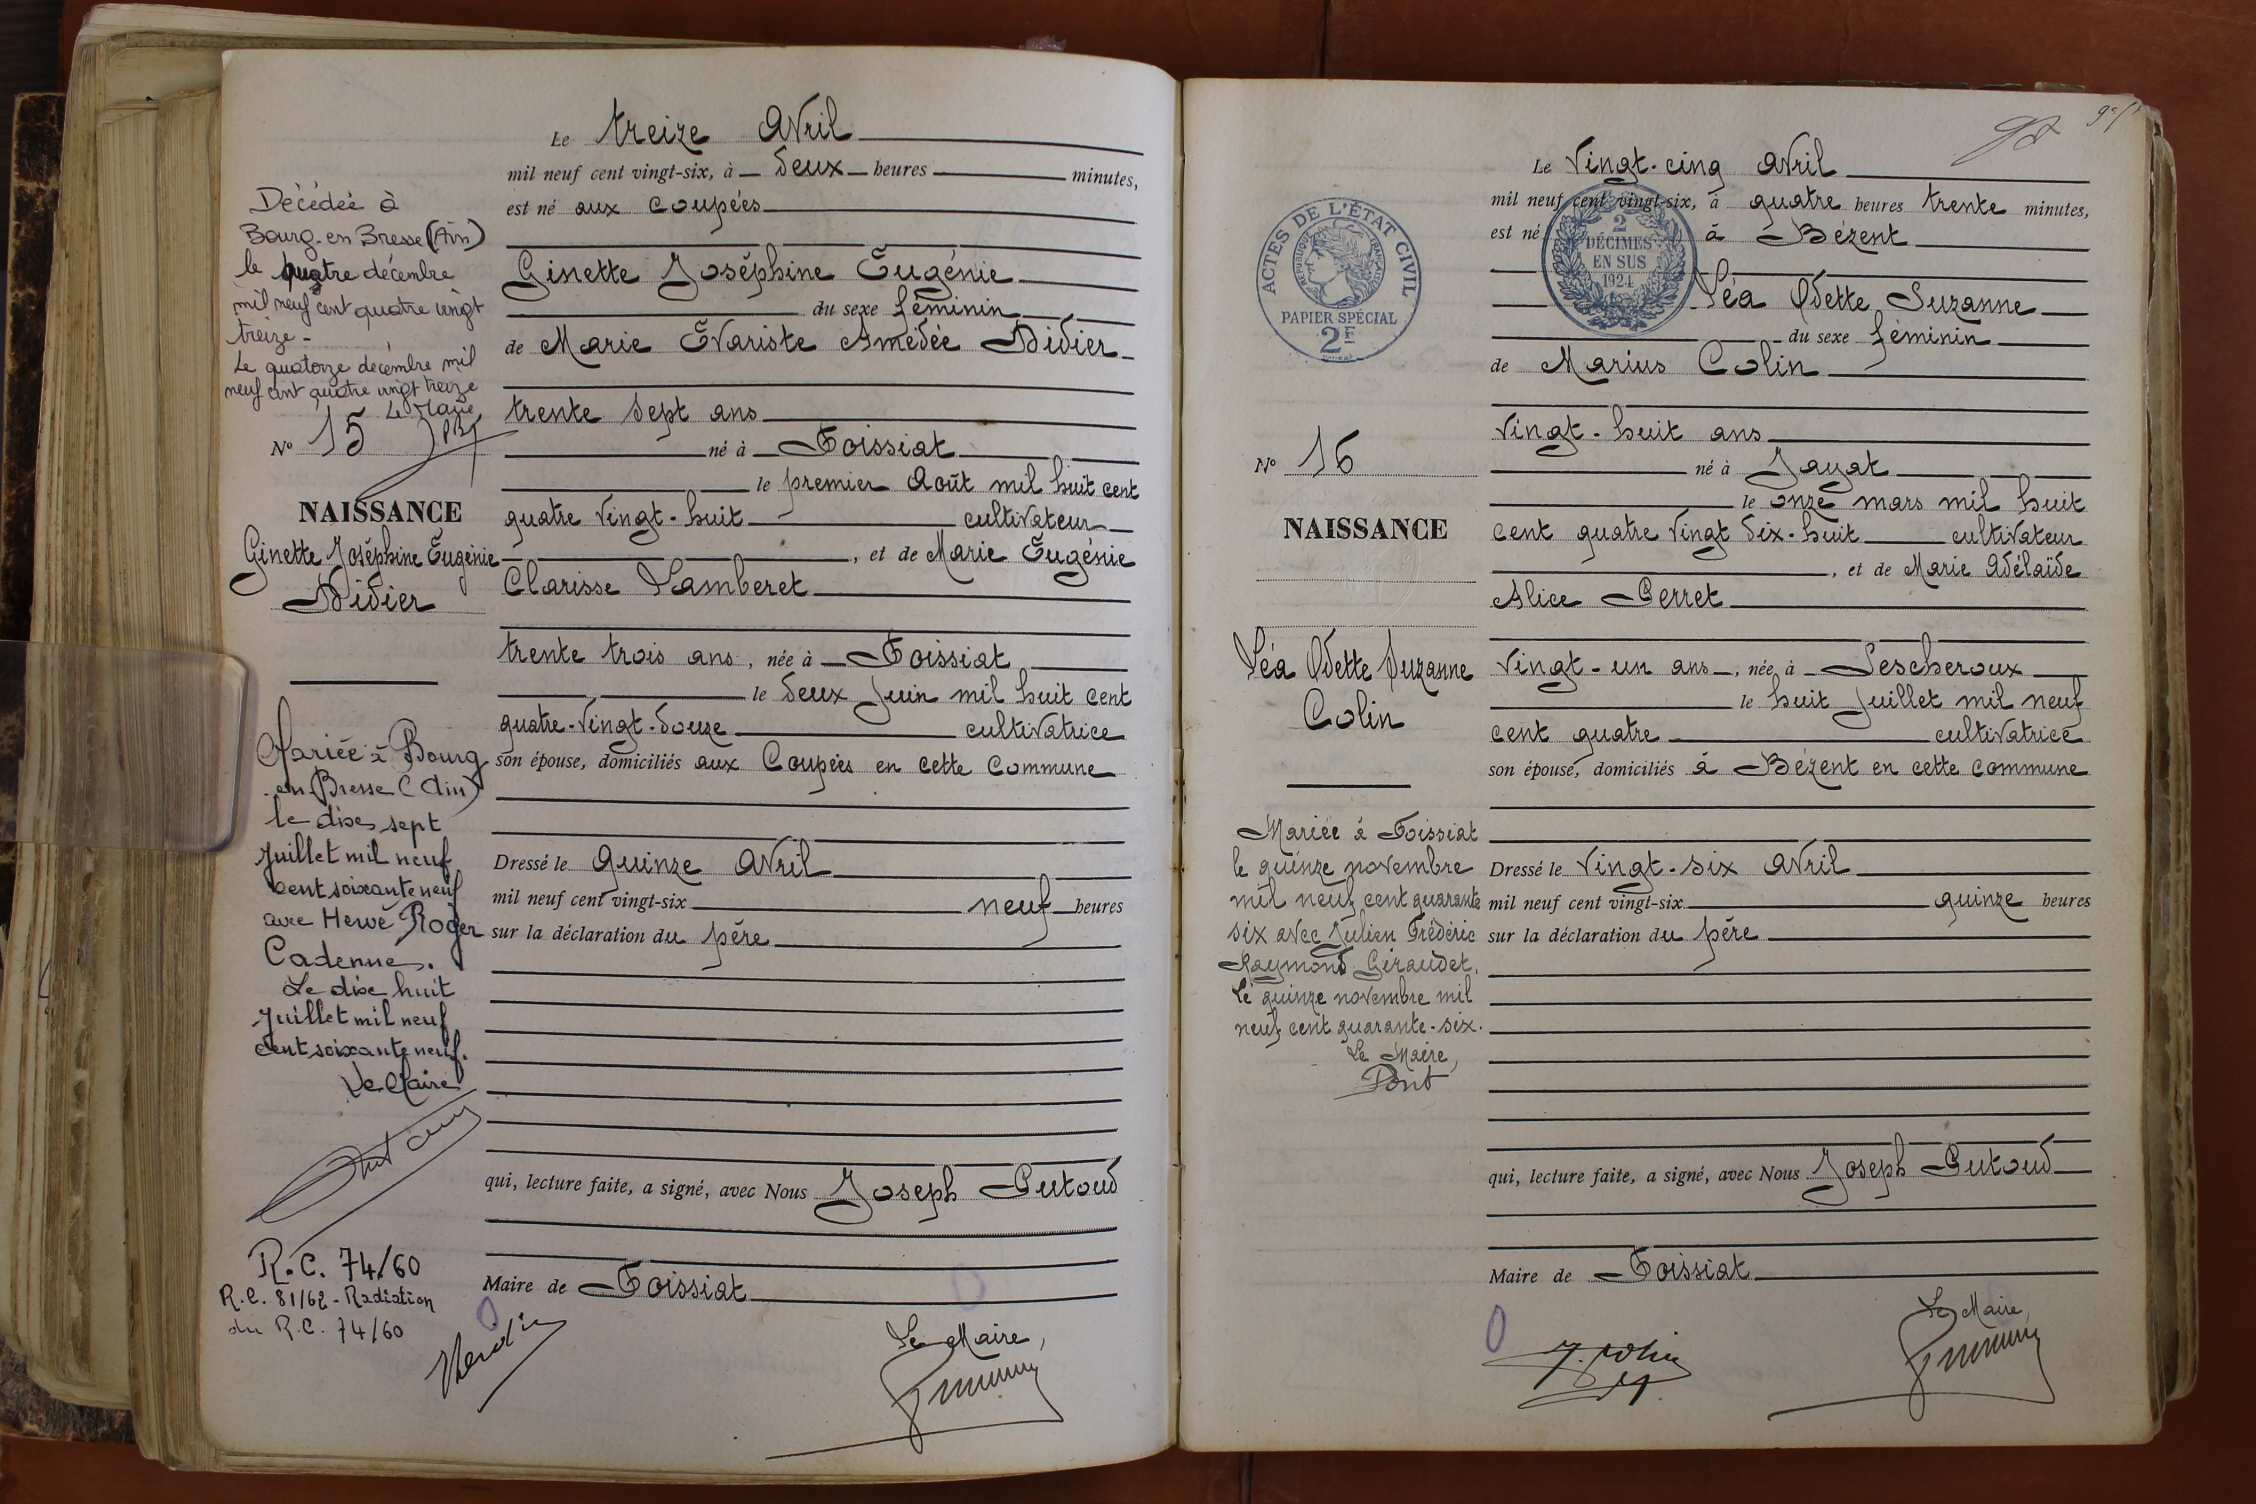 Le treize Avril
mil neuf cent vingt-six, à deux heures minutes,
est né aux Coupées
Ginette Joséphine Eugénie
du sexe féminin
de Marie Evariste Amédée Didier
trente sept ans
né à Foissiat
le premier Août mil huit cent
quatre vingt-huit cultivateur
, et de Marie Eugénie
Clarisse Lamberet
trente trois ans, née à Foissiat
le deux Juin mil huit cent
quatre-vingt-douze cultivatrice
son épouse, domiciliés aux Coupées en cette commune
Dressé le quinze Avril
mil neuf cent vingt-six neuf heures
sur la déclaration du père
qui, lecture faite, a signé, avec Nous Joseph Putoud
Maire de Foissiat
Le Maire,
Décédée à
Bourg-en-Bresse (Ain)
le quatre décembre
mil neuf cent quatre vingt
treize-
Le quatorze décembre mil
neuf cent quatre vingt treize
Le Maire
N° 15
NAISSANCE
Ginette Joséphine Eugénie
Didier
Mariée à Bourg
en Bresse (Ain)
le dix sept
Juillet mil neuf
cent soixante neuf
avec Hervé Roger
Cadenne.
Le dix huit
Juillet mil neuf
cent soixante neuf.
Le Maire
R.C. 74/60
R.C. 81/62 - Radiation
du R.C. 74/60
Le vingt-cinq Avril
mil neuf cent vingt-six, à quatre heures trente minutes,
est né à Bézent
Léa Odette Suzanne
du sexe féminin
de Marius Colin
vingt-huit ans
né à Jayat
le onze mars mil huit
cent quatre vingt dix-huit cultivateur
, et de Marie Adélaïde
Alice Perret
vingt-un ans, née à Lescheroux
le huit Juillet mil neuf
cent quatre cultivatrice
son épouse, domiciliés à Bézent en cette commune
Dressé le vingt-six Avril
mil neuf cent vingt-six quinze heures
sur la déclaration du père
qui, lecture faite, a signé, avec Nous Joseph Putoud
Maire de Foissiat
Le Maire,
ACTES DE L'ÉTAT CIVIL
RÉPUBLIQUE FRANÇAISE
PAPIER SPÉCIAL
2F
2
DÉCIMES
EN SUS
1924
N° 16
NAISSANCE
Léa Odette Suzanne
Colin
Mariée à Foissiat
le quinze novembre
mil neuf cent quarante
six avec Julien Frédéric
Raymond Giraudet.
Le quinze novembre mil
neuf cent quarante-six.
Le Maire,
Pont